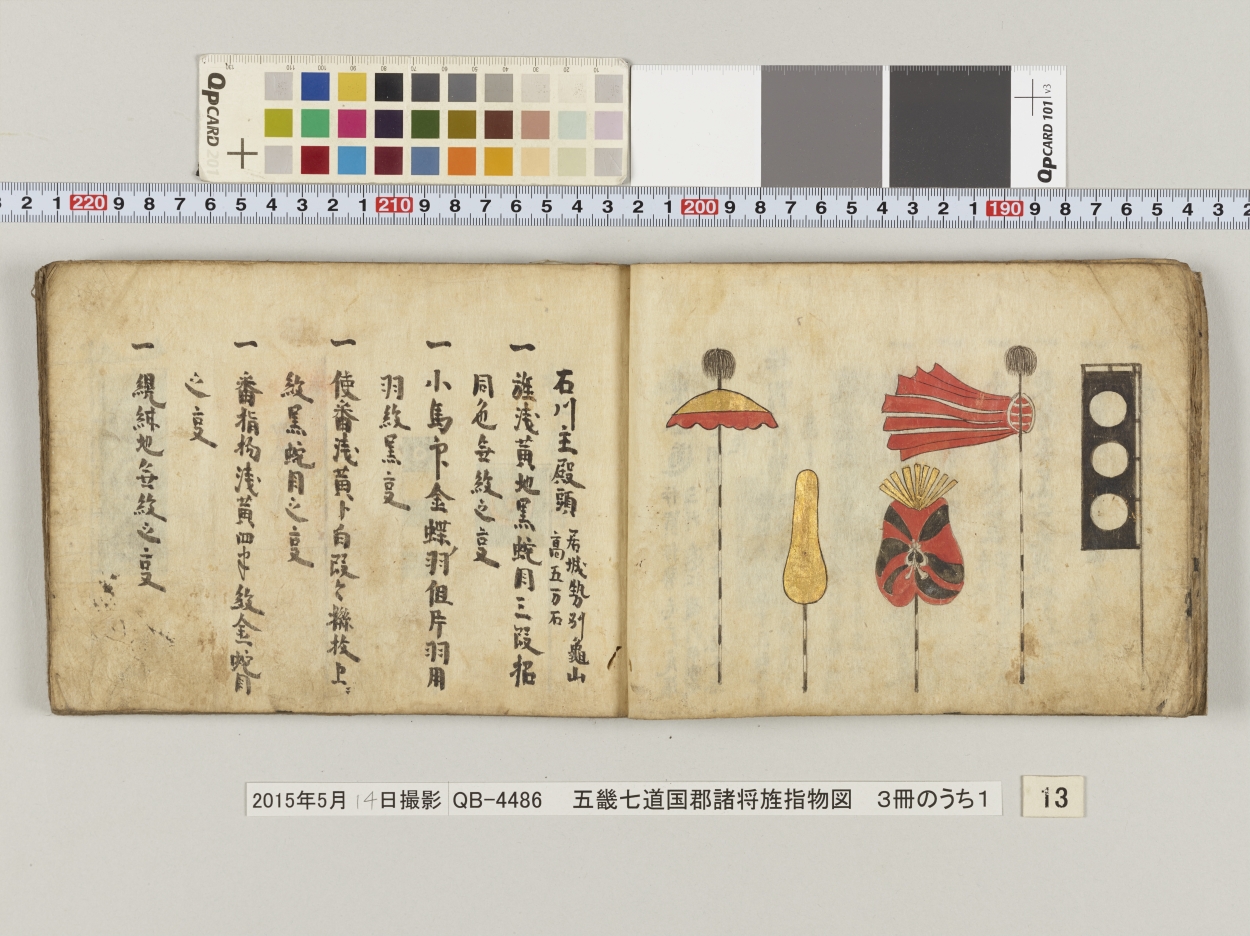 QPCARD 201
QPCARD 101 v3
3 2 1 220 9 8 7 6 5 4 3 2 1 210 9 8 7 6 5 4 3 2 1 200 9 8 7 6 5 4 3 2 1 190 9 8 7 6 5 4 3 2
石川主殿頭 居城勢刕龜山
高五万石
一 旌浅黄地黒蛇目三段招
同色無紋之亨
一 小馬印金蝶羽但片羽用
羽紋黒亨
一 使番浅黄ト白段々撓枝上ニ
紋黒蛇目之亨
一 番指物浅黄四半紋金蛇目
之亨
一 纲地無紋之亨
2015年5月14日撮影 QB-4486 五畿七道国郡諸将旌指物図 3冊のうち1
13